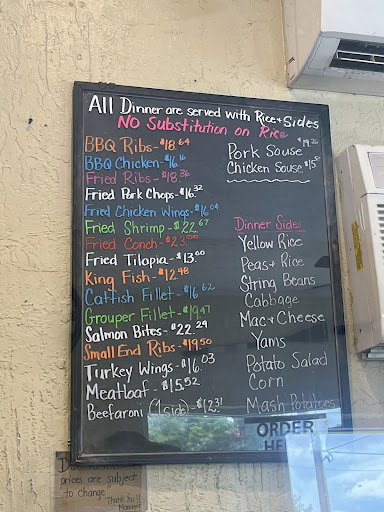 All Dinner are served with Rice + Sides
No Substitution on Rice
BBQ Ribs - $18.64
BBQ Chicken - $16.16
Fried Ribs - $18.36
Fried Pork Chops - $16.32
Fried Chicken Wings - $16.04
Fried Shrimp - $22.67
Fried Conch - $23.00
Fried Tilapia - $13.00
King Fish - $12.48
Catfish Fillet - $16.62
Grouper Fillet - $19.47
Salmon Bites - $22.29
Small End Ribs - $19.50
Turkey Wings - $16.03
Meatloaf - $15.52
Beefaroni (1 side) - $12.31
Pork Souse
Chicken Souse
Dinner Sides
Yellow Rice
Peas + Rice
String Beans
Cabbage
Mac + Cheese
Yams
Potato Salad
Corn
Mash Potatoes
ORDER
prices are subject
to change
Thank You!!